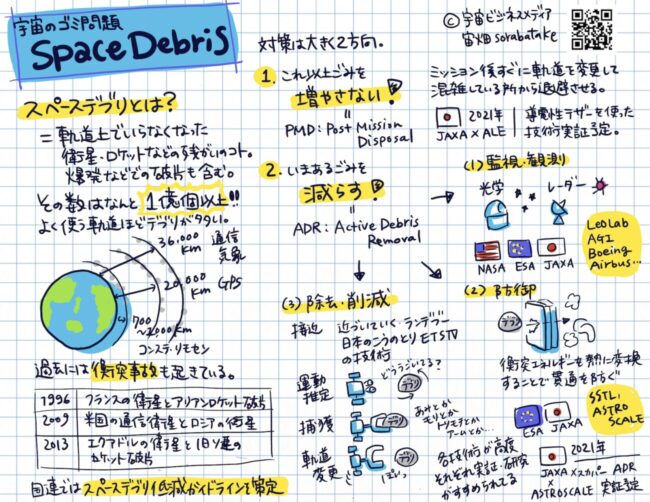 宇宙のゴミ問題
Space Debris
スペースデブリとは?
= 軌道上でいらなくなった
衛星・ロケットなどの残がいのコト。
爆発などでの破片も含む。
その数はなんと 1億個以上!!
よく使う軌道ほどデブリが多い。
36,000 km 通信 気象
20,000 km GPS
700
km
コンステ・リモセン
過去には衝突事故も起きている。
1996 フランスの衛星とアリアンロケット破片
2009 米国の通信衛星とロシアの衛星
2013 エクアドルの衛星と旧ソ連の
ロケット破片
国連ではスペースデブリ低減ガイドラインを策定
対策は大きく2方向。
1. これ以上ごみを
増やさない!
PMD: Post Mission
Disposal
2. いまあるごみを
減らす!
ADR: Active Debris
Removal
(3) 除去・削減
接近 近づいていく・ランデブー
日本のこうのとり ETSⅦ
の技術
運動
推定
どううごいてる?
デブリ
捕獲
あみとか
モリとか
トリモチとか
アームとか…
軌道
変更
各技術が高度
それぞれ実証・研究
がすすめられてる
© 宇宙ビジネスメディア
宙畑 sorabatake
ミッション後すぐに軌道を変更して
混雑している所から退避させる。
2021年
JAXA × ALE
導電性テザーを使った
技術実証予定。
(1) 監視・観測
光学 レーダー
NASA ESA JAXA
LeoLab
AGI
Boeing
Airbus…
(2) 防御
デブリ
衝突エネルギーを熱に変換
することで貫通を防ぐ
ESA JAXA
SSTL,
ASTRO
SCALE
2021年
JAXA × スカパー ADR
× ASTROSCALE 実証予定